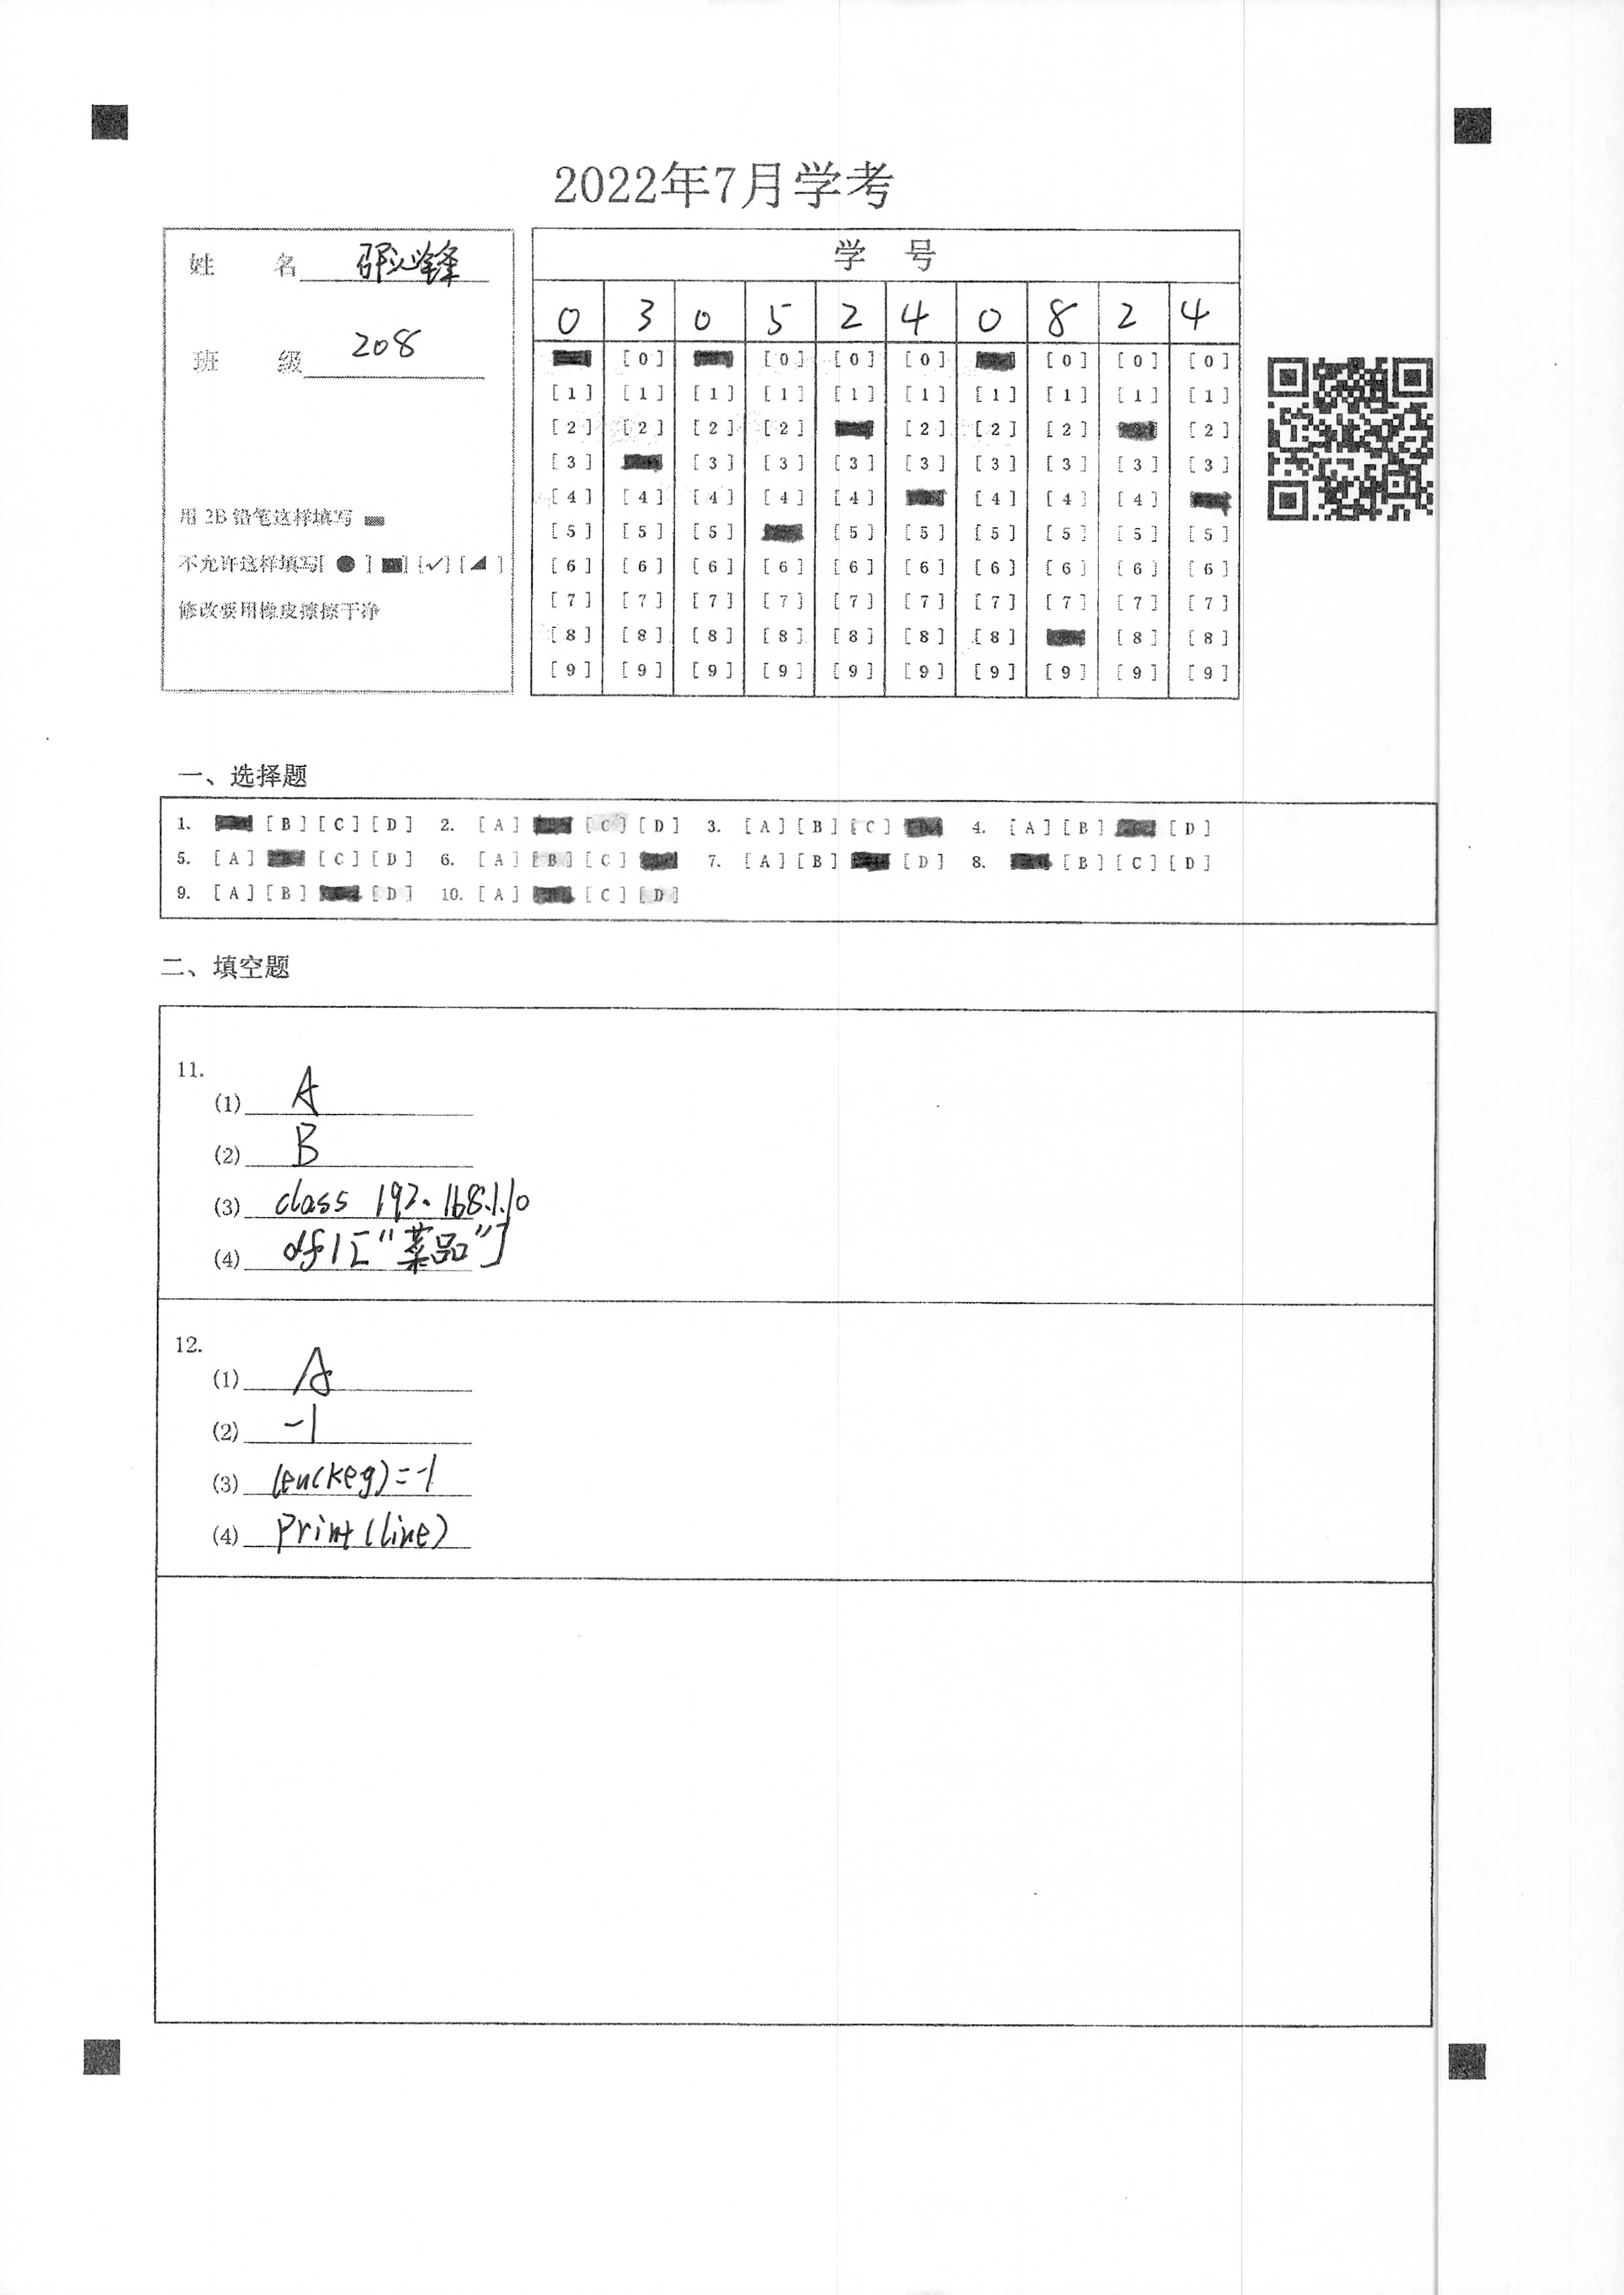 2022年7月学考
姓 名 邵必锋
班 级 208
用 2B 铅笔这样填写
不允许这样填写[ ● ] [■] [✓] [◢ ]
修改要用橡皮擦擦干净
学 号
0 3 0 5 2 4 0 8 2 4
[0] [0] [0] [0] [0] [0] [0]
[1] [1] [1] [1] [1] [1] [1] [1] [1] [1]
[2] [2] [2] [2] [2] [2] [2] [2]
[3] [3] [3] [3] [3] [3] [3] [3] [3]
[4] [4] [4] [4] [4] [4] [4] [4]
[5] [5] [5] [5] [5] [5] [5] [5] [5]
[6] [6] [6] [6] [6] [6] [6] [6] [6] [6]
[7] [7] [7] [7] [7] [7] [7] [7] [7] [7]
[8] [8] [8] [8] [8] [8] [8] [8] [8]
[9] [9] [9] [9] [9] [9] [9] [9] [9] [9]
一、选择题
1. [B] [C] [D] 2. [A] [C] [D] 3. [A] [B] [C] 4. [A] [B] [D]
5. [A] [C] [D] 6. [A] [B] [C] 7. [A] [B] [D] 8. [B] [C] [D]
9. [A] [B] [D] 10. [A] [C] [D]
二、填空题
11.
(1) A
(2) B
(3) class 192.168.1.10
(4) df1["菜品"]
12.
(1) A
(2) -1
(3) len(key)=-1
(4) print(line)